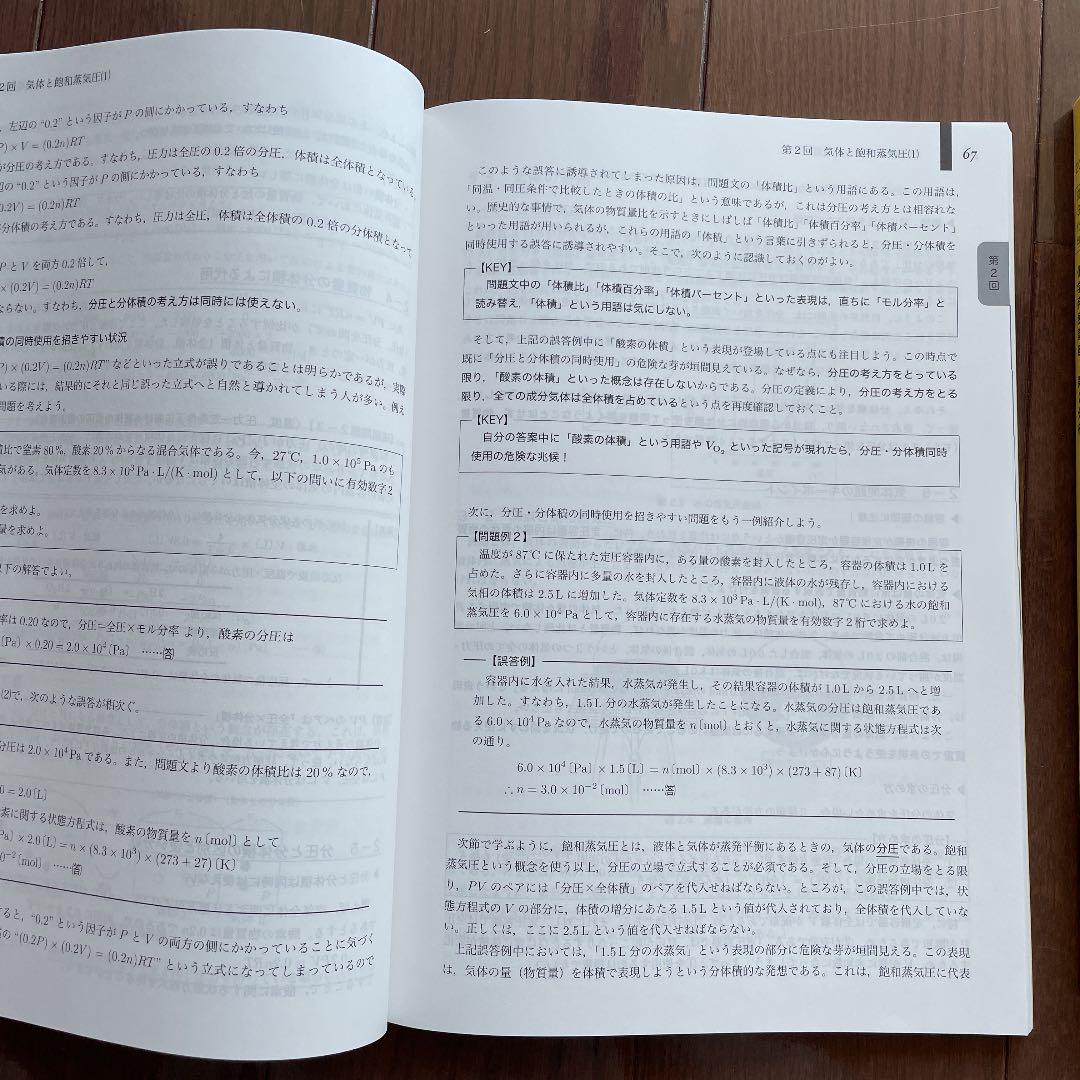 2回 気体と飽和蒸気圧(1)
，左辺の“0.2”という因子がPの側にかかっている，すなわち
P)×V=(0.2n)RT
が分圧の考え方である。すなわち，圧力は全圧の0.2倍の分圧，体積は全体積となっている，
辺の“0.2”という因子がPの側にかかっている，すなわち
(0.2V)=(0.2n)RT
分体積の考え方である。すなわち，圧力は全圧，体積は全体積の0.2倍の分体積となって
PとVを両方0.2倍して，
×(0.2V)=(0.2n)RT
ならない。すなわち，分圧と分体積の考え方は同時には使えない。
積の同時使用を招きやすい状況
P)×(0.2V)=(0.2n)RT”などといった立式が誤りであることは明らかであるが，実際
いる際には，結果的にそれと同じ誤った立式へと自然と導かれてしまう人が多い。例え
問題を考えよう。
積比で窒素80%，酸素20%からなる混合気体である。今，27℃，1.0×10⁵Paのも
気がある。気体定数を8.3×10³Pa·L/(K·mol)として，以下の問いに有効数字2
を求めよ。
量を求めよ。
以下の解答でよい。
率は0.20なので，分圧=全圧×モル分率 より，酸素の分圧は
〔Pa〕×0.20=2.0×10⁴〔Pa〕 ……答
(2)で，次のような誤答が相次ぐ。
分圧は2.0×10⁴Paである。また，問題文より酸素の体積比は20%なので，
0=2.0〔L〕
素に関する状態方程式は，酸素の物質量をn〔mol〕として
Pa〕×2.0〔L〕=n×(8.3×10³)×(273+27)〔K〕
⁻²〔mol〕 ……答
すると，“0.2”という因子がPとVの両方の側にかかっていることに気づく
の“(0.2P)×(0.2V)=(0.2n)RT”という立式になってしまっているので
第2回 気体と飽和蒸気圧(1) 67
このような誤答に誘導されてしまった原因は，問題文の「体積比」という用語にある。この用語は，
「同温・同圧条件で比較したときの体積の比」という意味であるが，これは分圧の考え方とは相容れな
い。歴史的な事情で，気体の物質量比を示すときにしばしば「体積比」「体積百分率」「体積パーセント」
といった用語が用いられるが，これらの用語の「体積」という言葉に引きずられると，分圧・分体積を
同時使用する誤答に誘導されやすい。そこで，次のように認識しておくのがよい。
第2回
【KEY】
問題文中の「体積比」「体積百分率」「体積パーセント」といった表現は，直ちに「モル分率」と
読み替え，「体積」という用語は気にしない。
そして，上記の誤答例中に「酸素の体積」という表現が登場している点にも注目しよう。この時点で
既に「分圧と分体積の同時使用」の危険な芽が垣間見えている。なぜなら，分圧の考え方をとっている
限り，「酸素の体積」といった概念は存在しないからである。分圧の定義により，分圧の考え方をとる
限り，全ての成分気体は全体積を占めているという点を再度確認しておくこと。
【KEY】
自分の答案中に「酸素の体積」という用語やV_O₂といった記号が現れたら，分圧・分体積同時
使用の危険な兆候！
次に，分圧・分体積の同時使用を招きやすい問題をもう一例紹介しよう。
【問題例2】
温度が87℃に保たれた定圧容器内に，ある量の酸素を封入したところ，容器の体積は1.0Lを
占めた。さらに容器内に多量の水を封入したところ，容器内に液体の水が残存し，容器内における
気相の体積は2.5Lに増加した。気体定数を8.3×10³Pa·L/(K·mol)，87℃における水の飽和
蒸気圧を6.0×10⁴Paとして，容器内に存在する水蒸気の物質量を有効数字2桁で求めよ。
【誤答例】
容器内に水を入れた結果，水蒸気が発生し，その結果容器の体積が1.0Lから2.5Lへと増
加した。すなわち，1.5L分の水蒸気が発生したことになる。水蒸気の分圧は飽和蒸気圧であ
る6.0×10⁴Paなので，水蒸気の物質量をn〔mol〕とおくと，水蒸気に関する状態方程式は次
の通り。
6.0×10⁴〔Pa〕×1.5〔L〕=n〔mol〕×(8.3×10³)×(273+87)〔K〕
∴n=3.0×10⁻²〔mol〕 ……答
次節で学ぶように，飽和蒸気圧とは，液体と気体が蒸発平衡にあるときの，気体の分圧である。飽和
蒸気圧という概念を使う以上，分圧の立場で立式することが必須である。そして，分圧の立場をとる限
り，PVのペアには「分圧×全体積」のペアを代入せねばならない。ところが，この誤答例中では，状
態方程式のVの部分に，体積の増分にあたる1.5Lという値が代入されており，全体積を代入していな
い。正しくは，ここに2.5Lという値を代入せねばならない。
上記誤答例中においては，「1.5L分の水蒸気」という表現の部分に危険な芽が垣間見える。この表現
は，気体の量（物質量）を体積で表現しようという分体積的な発想である。これは，飽和蒸気圧に代表